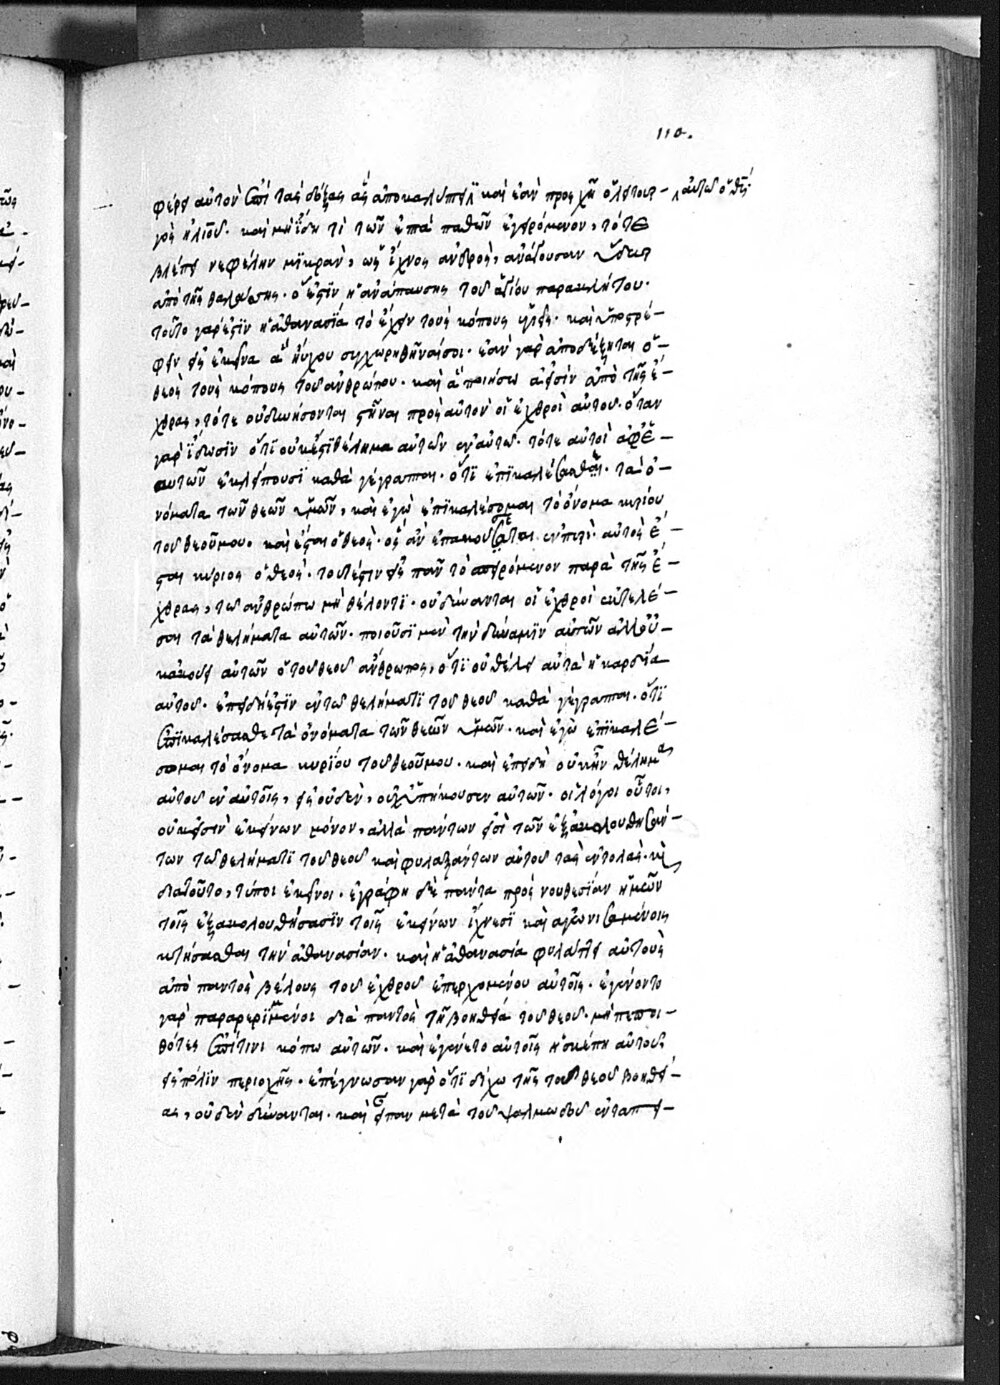 110.
φέρει αὐτὸν ἐπὶ τὰς δόξας ἃς ἀποκαλύπτει καὶ ἐὰν προσχῆ ὁ αὐτῶ ὁ θς
γὸς ἠλιοῦ· καὶ μὴ ἴδη τὶ τῶν ἑπτὰ παθῶν ἐγειρόμενον, τότε
βλέπει νεφέλην μϊκρὰν, ὡς ἴχνος ἀνδρὸς, ἀνάγουσαν ὕδωρ
ἀπὸ τῆς θαλάσσης· ὅ ἐστϊν ἡ ἀνάπαυσης τοῦ ἁγίου παρακλήτου·
τοῦτο γάρ ἐστϊν ἡ ἀθανασία τὸ ἔχειν τοὺς κόπους καὶ ὑποστρέ-
φειν εἰς ἐκεῖνα ἃ συγχωρηθῆναί σοι· ἐὰν γὰρ ἀποδέξηται ὁ-
θεὸς τοὺς κόπους τοῦ ἀνθρώπου· καὶ ἃ ποιήσω ἀπὸ τῆς ἔ-
χθρας, τότε οὐ δυνήσονται στῆναι πρὸς αὐτὸν οἱ ἐχθροὶ αὐτοῦ· ὅταν
γὰρ ἴδωσϊν ὅτϊ οὐκ ἔστϊ θέλημα αὐτῶν ἐν αὐτῶ· τότε αὐτοὶ ἀφ' ἑ-
αυτῶν ἐκλείπουσϊ καθὰ γέγραπται· ὅτϊ ἐπϊκαλέσασθαι· τὰ ὀ-
νόματα τῶν θεῶν ὑμῶν, καὶ ἐγὼ ἐπϊκαλέσομαι τὸ ὄνομα κυρίου
τοῦ θεοῦ μου· καὶ ἔσται ὁ θεὸς· ὃς ἂν ἐπακούσεται ἐν πυρί· αὐτὸς ἔ-
σται κύριος ὁ θεός· τουτέστιν εἰς πᾶν τὸ σπειρόμενον παρὰ τῆς ἔ-
χθρας, τῶ ἀνθρώπω μὴ θέλοντϊ· οὐ δύνανται οἱ ἐχθροὶ ἐκτελέ-
σαι τὰ θελήματα αὐτῶν· ποιοῦσϊ μὲν τὴν δύναμϊν αὐτῶν ἀλλ' οὐ-
κ ἀκούει αὐτῶν ὁ τοῦ θεοῦ ἄνθρωπος, ὅτϊ οὐ θέλει αὐτὰ ἡ καρδία
αὐτοῦ· ἐπειδή ἐστϊν ἐν τῶ θελήματϊ τοῦ θεοῦ καθὰ γέγραπται· ὅτϊ
ἐπϊκαλέσασθε τὰ ὀνόματα τῶν θεῶν ὑμῶν· καὶ ἐγὼ ἐπϊκαλέ-
σωμαι τὸ ὄνομα κυρίου τοῦ θεοῦ μου· καὶ ἐπειδὴ οὐκ ἦν θέλημα
αὐτοῦ ἐν αὐτοῖς, εἰς οὐδὲν, οὐχ ὑπήκουσεν αὐτῶν· οἱ λόγοι οὗτοι,
οὐκ εἰσὶν ἐκείνων μόνον, ἀλλὰ πάντων εἰσὶ τῶν ἐξακολουθησάν-
των τῶ θελήματϊ τοῦ θεοῦ καὶ φυλαξάντων αὐτοῦ τὰς ἐντολάς· κὶ
διατοῦτο, τύποι ἐκεῖνοι· ἐγράφη δὲ πάντα πρὸς νουθεσΐαν ἡμῶν
τοῖς ἐξακολουθήσασϊν τοῖς ἐκείνων ἴχνεσϊ καὶ ἀγωνισαμένοις
κτήσασθαι τὴν ἀθανασίαν· καὶ ἡ ἀθανασία φυλάττει αὐτοὺς
ἀπὸ παντὸς βέλους τοῦ ἐχθροῦ ἐπερχομένου αὐτοῖς· ἐγένοντο
γὰρ παραρεριμμένοι διὰ παντὸς τῆ βοηθεία τοῦ θεοῦ· μὴ πεποι-
θότες ἐπίτινι κόπω αὐτῶν· καὶ ἐγένετο αὐτοῖς ἡ σκέπη αὐτοῦ,
εἰς πόλϊν περιοχῆς· ἐπέγνωσαν γὰρ ὅτϊ δίχω τῆς τοῦ θεοῦ βοηθεί-
ας, οὐδὲν δύνανται· καὶ εἶπαν μετὰ τοῦ ψαλμωδοῦ ἐν ταπει-